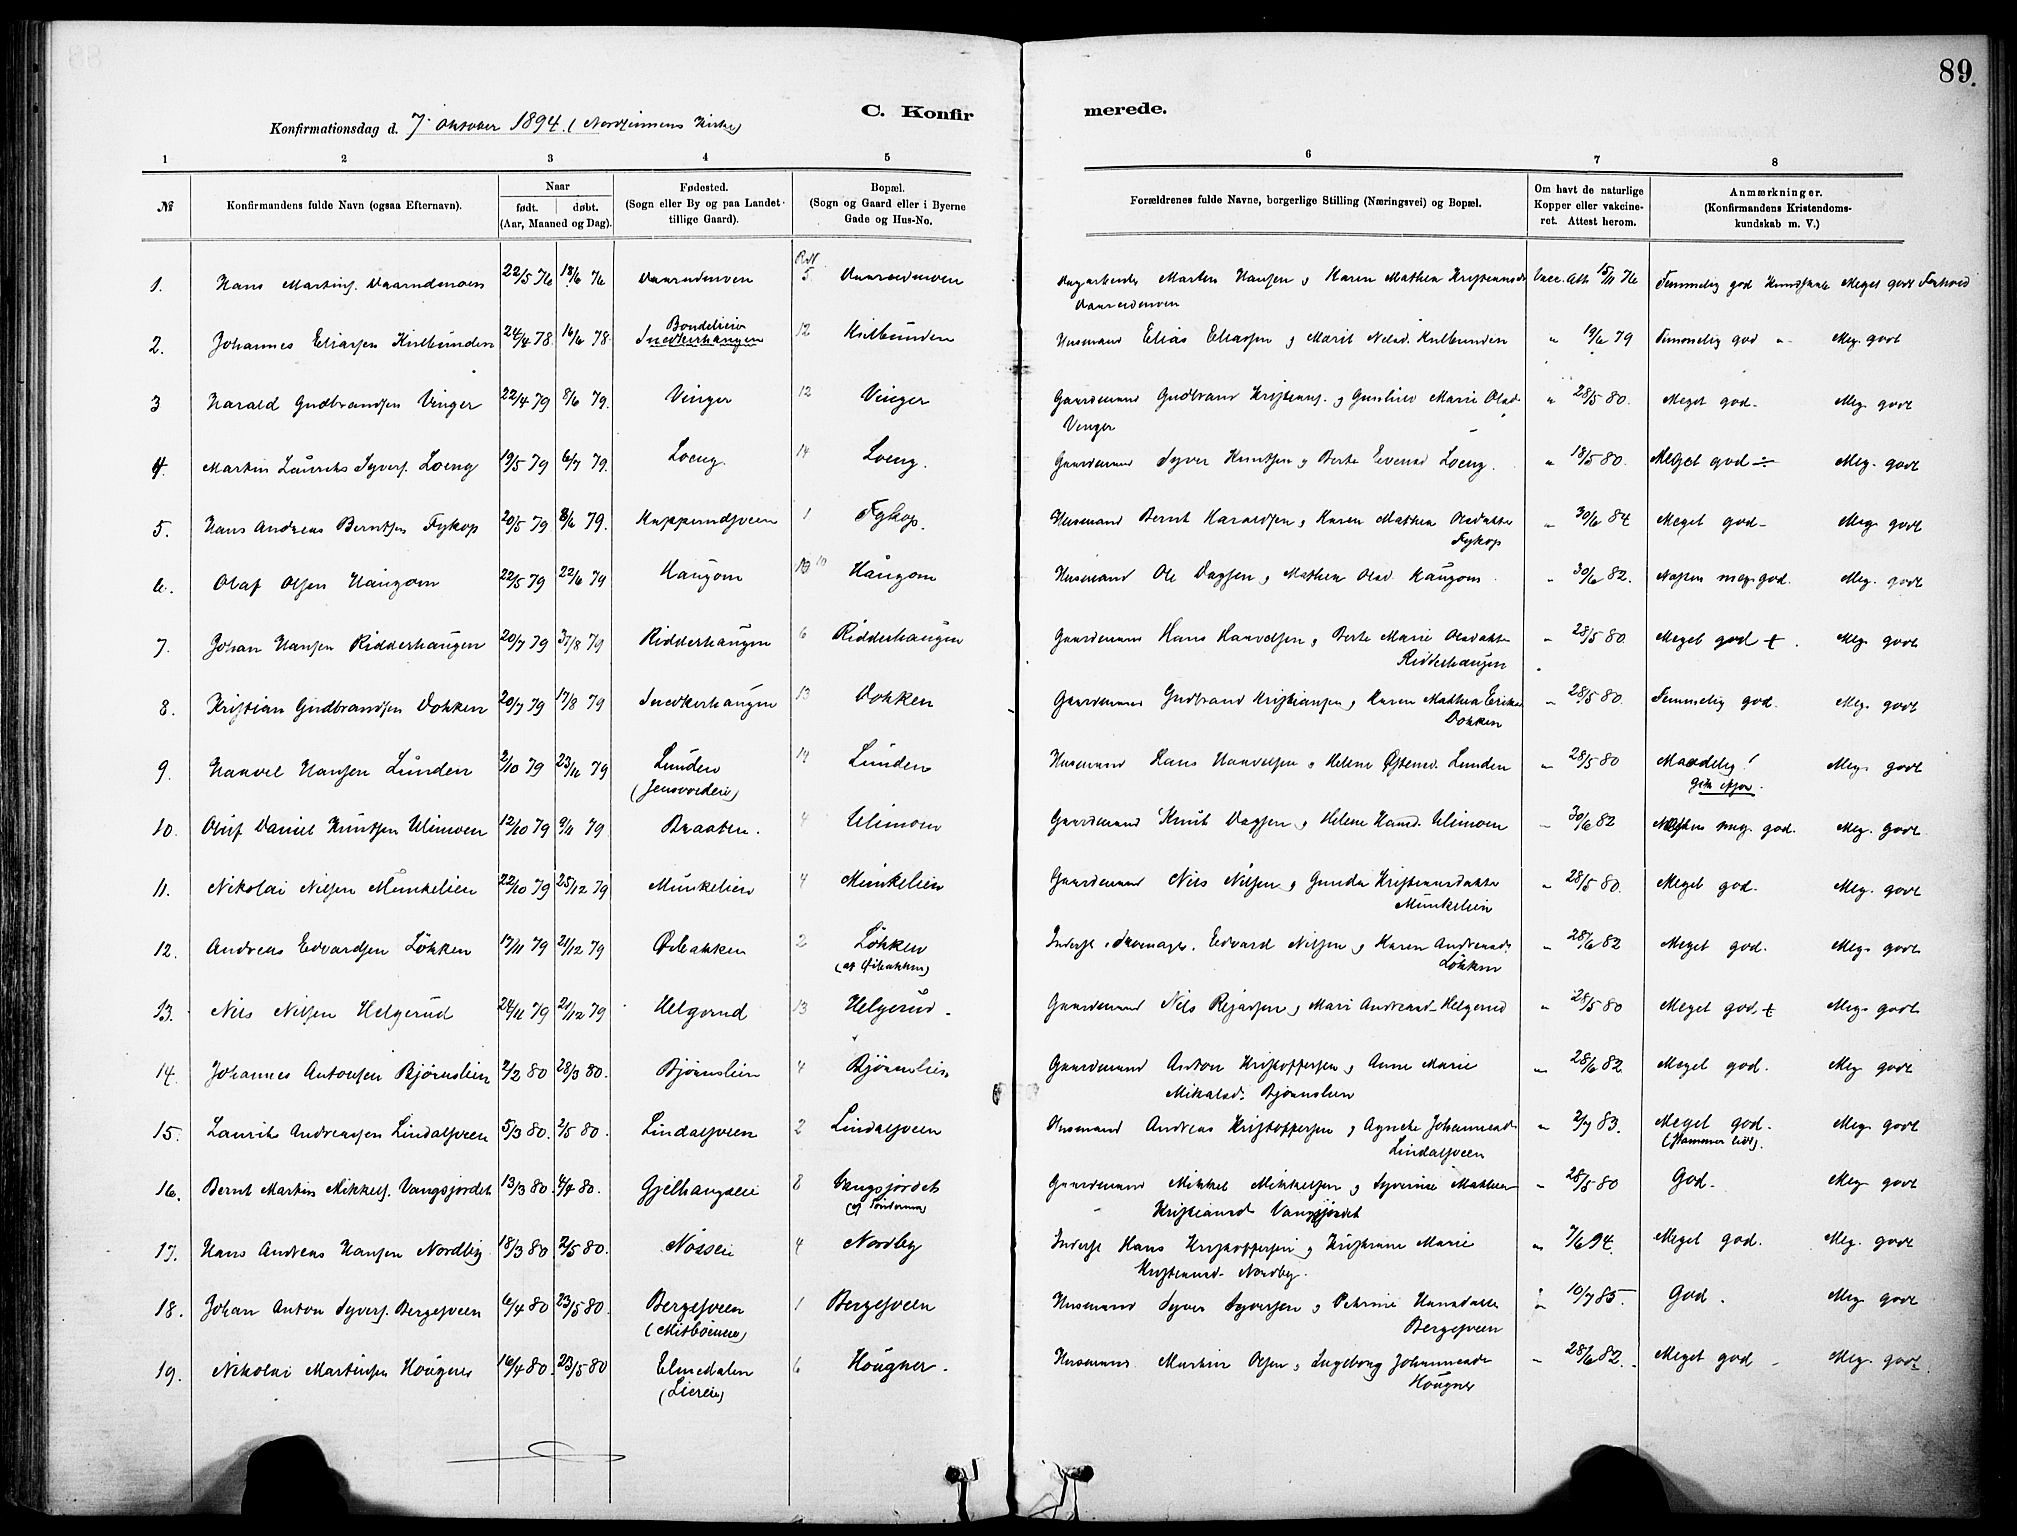 89.
C. Konfir merede.
Konfirmationsdag d. 7. oktober 1894. (Nordsinnens Kirke)
1 2 3 4 5 6 7 8
№ Konfirmandens fulde Navn (ogsaa Efternavn). Naar født. døbt. (Aar, Maaned og Dag). Fødested. (Sogn eller By og paa Landet tillige Gaard). Bopæl. (Sogn og Gaard eller i Byerne Gade og Hus-No. Forældrenes fulde Navne, borgerlige Stilling (Næringsvei) og Bopæl. Om havt de naturlige Kopper eller vakcineret. Attest herom. Anmærkninger. (Konfirmandens Kristendomskundskab m. V.)
1. Hans Martins. 22/5 76 18/6 76 5 Martin Hansen Karen Mathea Vacc. Att. 15/11 76 Temmelig god Kundskab Meget godt Forhold
2. Johannes Eliassen 24/4 78. 16/6 78. Bondelieie Snedkerhaugen 12 Husmand Elias Eliassen og Marit Nelsd. " 19/6 79 Temmelig god " Meg. godt
3 Harald Gudbrandsen Vinger 22/4 79 8/6 79. Vinger 12 Vinger Gaardmand Gudbrand Kristians. og Marie Olsd. " 28/5 80. Meget god. Meg. godt
Vinger
4. Martin Laurits Syvers. Loeng 19/5 79 6/7 79. Loeng. 14 Loeng. Gaardmand Syver Knutsen og Berte Evensd Loeng. " 18/5 80. Meget god ÷ Meg. godt
5. Hans Andreas Berntsen Fykop 20/5 79 8/6 79. 1 Fykop. Husmand Bernt Haraldsen og Karen Mathea Olsdatter " 30/6 84 Meget god - Meg. godt
Fykop
6. Olaf Olsen Haugom 22/5 79 22/6 79 Haugom 10 Haugom Husmand Ole Dagsen og Mathea Olsd. Haugom. " 30/6 82. Næsten meg. god. Meg. godt
7. Johan Hansen Ridderhaugen 20/7 79 31/8 79 Ridderhaugen 6 Ridderhaugen Gaardmand Hans Haavelsen og Berte Marie Olsdatter " 28/5 80 Meget god + . Meg. godt
Ridderhaugen
8. Kristian Gudbrandsen Dokken 20/7 79 17/8 79 Snedkerhaugen 13 Dokken Gaardmand Gudbrand Kristiansen og Karen Mathea Eriksd " 28/5 80. Temmelig god. Meg. godt
Dokken
9. Haavel Hansen Lunden 2/10 79 23/11 79 Lunden 14 Lunden Husmand Hans Haavelsen og Helene Østensd. Lunden " 28/5 80 Maadelig! Meg. godt
10. Oluf Daniel Knutsen Ulimoen 12/10 79 9/11 79 Braaten. 4 Ulimoen Gaardmand Knut Dagsen og Helene Hansd. Ulimoen " 30/6 82 Næsten meg. god. Meg. godt
11. Nikolai Nilsen Munkelien 22/10 79 25/12 79 Munkelien 4 Munkelien Gaardmand Nils Nilsen og Gunda Kristiansdatter " 28/5 80. Meget god. Meg. godt
Munkelien
12. Andreas Edvardsen Løkken 17/11 79 21/12 79 Øibakken 2 Løkken Inderst Edvard Nilsen og Karen Andreasd. " 28/6 82 Meget god. Meg. godt
(af Øibakken) Løkken
13. Nils Nilsen Helgerud 24/11 79 21/12 79 Helgerud 13 Helgerud. Gaardmand Nils Reiarsen og Mari Andreasd. Helgerud " 28/5 80 Meget god. + Meg. godt
14. Johannes Antonsen Bjørnslien 2/2 80 28/3 80. Bjørnslien 4 Bjørnslien Gaardmand Anton Kristoffersen og Anne Marie " 28/6 82. Meget god. Meg. godt
Mikalsd. Bjørnslien
15. Laurits Andreassen Lindalsveen 5/3 80. 2/5 80. Lindalsveen 2 Lindalsveen Husmand Andreas Kristoffersen og Agnete Johannesd. " 2/7 83. Meget god. Meg. godt
Lindalsveen (stammer lidt).
16. Bernt Martin Mikkels. Vangsjordet 13/3 80. 4/4 80. Gjelhaugseie 8 Vangsjordet Gaardmand Mikkel Mikkelsen og Syverine Mathea " 28/5 80 God. Meg. godt
Kristiansd Vangsjordet
17. Hans Andreas Hansen Nordby 18/3 80 2/5 80. 4 Nordby Inderst Hans Kristoffersen og Kristine Marie " 7/6 94. Meget god. Meg. godt
Kristiansd. Nordby.
18. Johan Anton Syvers. Bergesveen 6/4 80 23/5 80. Bergesveen 1 Bergesveen Husmand Syver Syversen og Petrine Hansdatter " 10/7 85. God. Meg. godt
Bergesveen
19. Nikolai Martinsen Hougner 16/4 80. 23/5 80 Elmedalen 6 Hougner. Husmand Martin Olsen og Ingeborg Johannesd. " 28/6 82. Meget god Meg. godt
(Liereie) Hougner